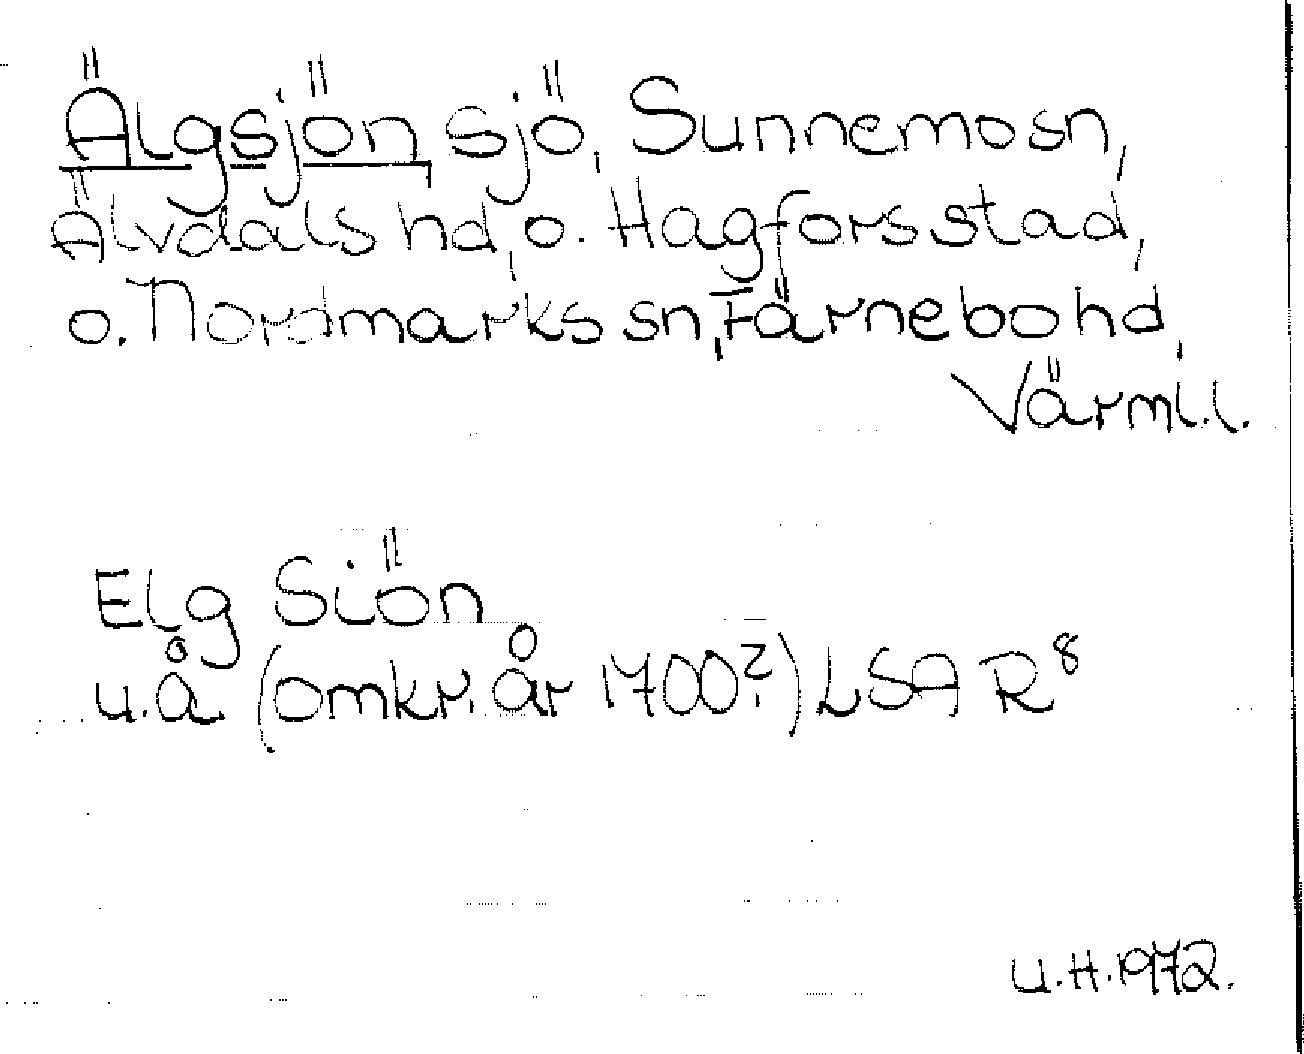 Älgsjön, sjö, Sunnemo sn,
Älvdals hd, o. Hagfors stad,
o. Nordmarks sn, Färnebo hd,
Värml.l.
Elg Siön
u.å. (omkr. år 1700?) LSA R⁸
U.H. 1972.